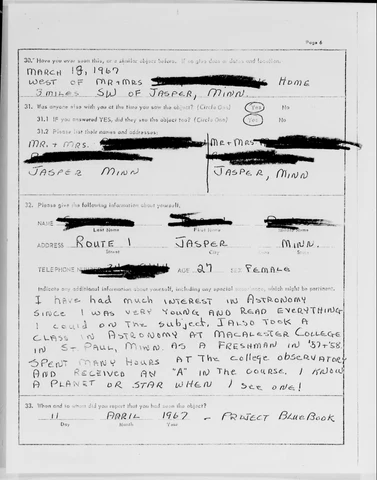 Page 6
30. Have you ever seen this, or a similar object before. If so give date or dates and location.
MARCH 18, 1967
WEST OF MR + MRS HOME
3 MILES SW OF JASPER, MINN.
31. Was anyone else with you at the time you saw the object? (Circle One) Yes No
31.1 IF you answered YES, did they see the object too? (Circle One) Yes No
31.2 Please list their names and addresses:
MR. + MRS. MR + MRS
JASPER MINN JASPER, MINN
32. Please give the following information about yourself:
NAME
Last Name First Name Middle Name
ADDRESS ROUTE 1 JASPER MINN.
Street City Zone State
TELEPHONE AGE 27 SEX FEMALE
Indicate any additional information about yourself, including any special experience, which might be pertinent.
I HAVE HAD MUCH INTEREST IN ASTRONOMY
SINCE I WAS VERY YOUNG AND READ EVERYTHING
I COULD ON THE SUBJECT. I ALSO TOOK A
CLASS IN ASTRONOMY AT MACALESTER COLLEGE
IN ST. PAUL, MINN. AS A FRESHMAN IN '57-'58.
SPENT MANY HOURS AT THE COLLEGE OBSERVATORY
AND RECEIVED AN "A" IN THE COURSE. I KNOW
A PLANET OR STAR WHEN I SEE ONE!
33. When and to whom did you report that you had seen the object?
11 APRIL 1967 - PROJECT BLUEBOOK
Day Month Year